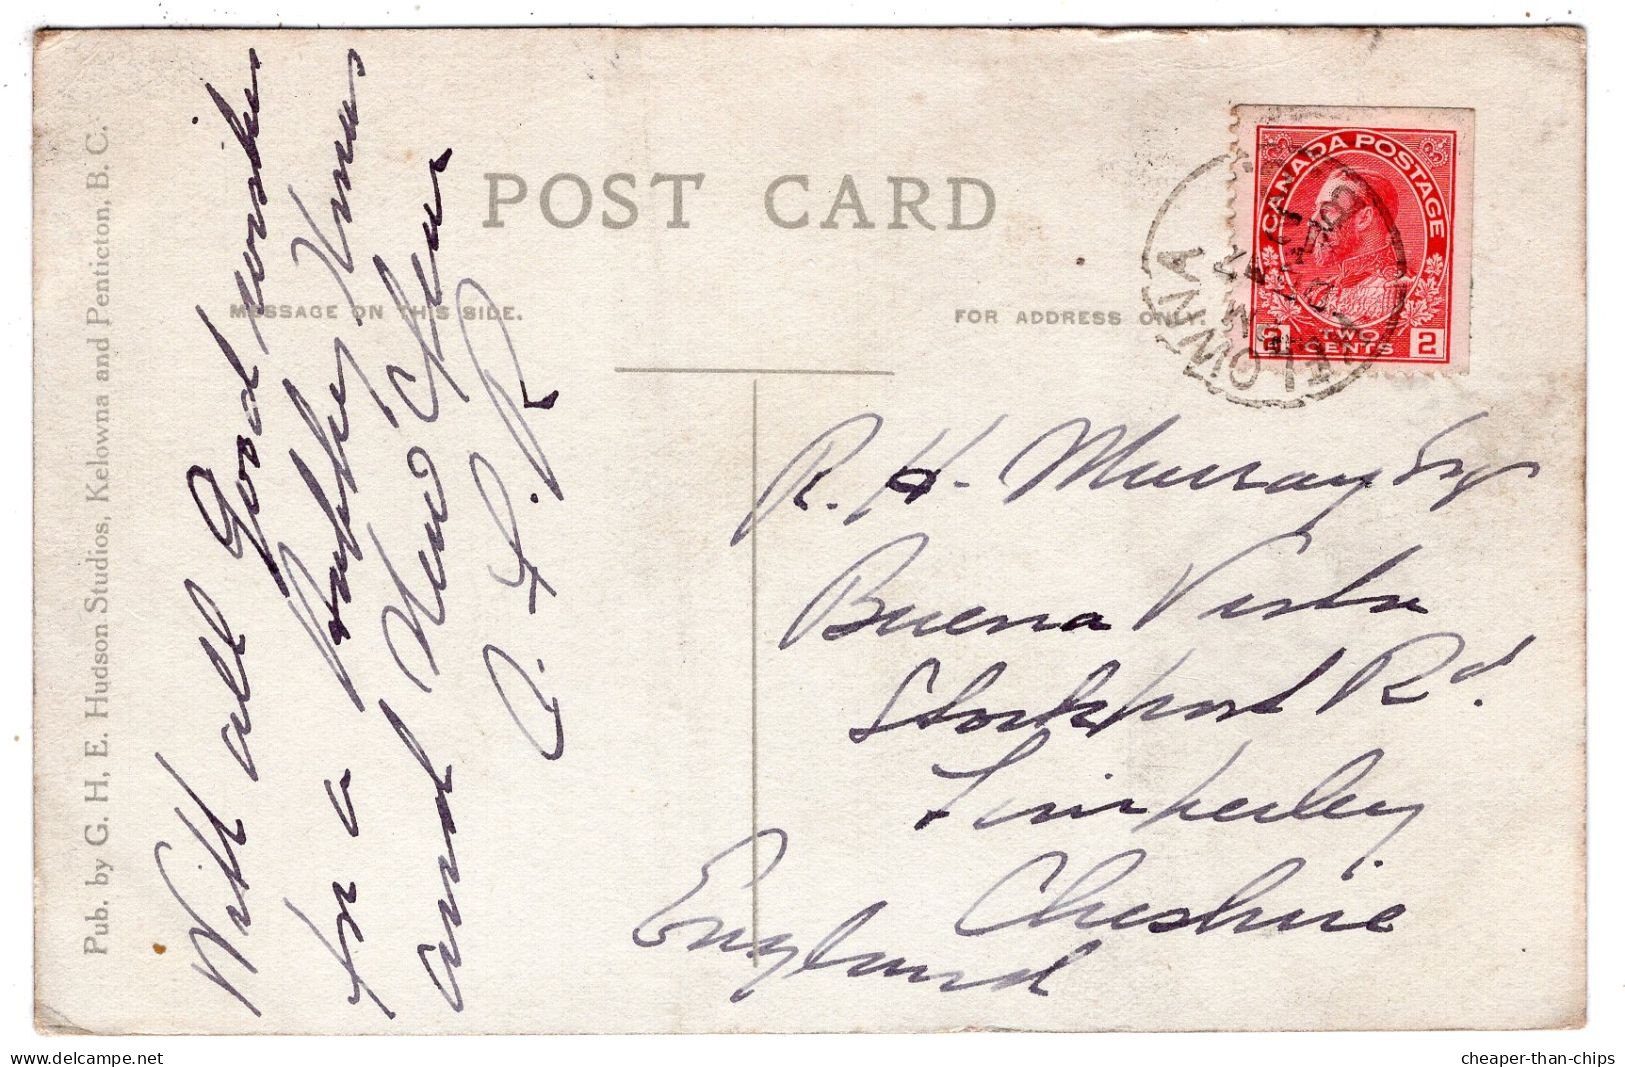 Pub. by G. H. E. Hudson Studios, Kelowna and Penticton, B. C.
With all Good wishes
for a Happy Xmas
and New Year
POST CARD
MESSAGE ON THIS SIDE.
FOR ADDRESS ONLY.
CANADA POSTAGE
2 TWO CENTS 2
KELOWNA
R. H. Murray Esq
Buena Vista
Stockport Rd.
Timperley
Cheshire
England
delcampe.net
cheaper-than-chips